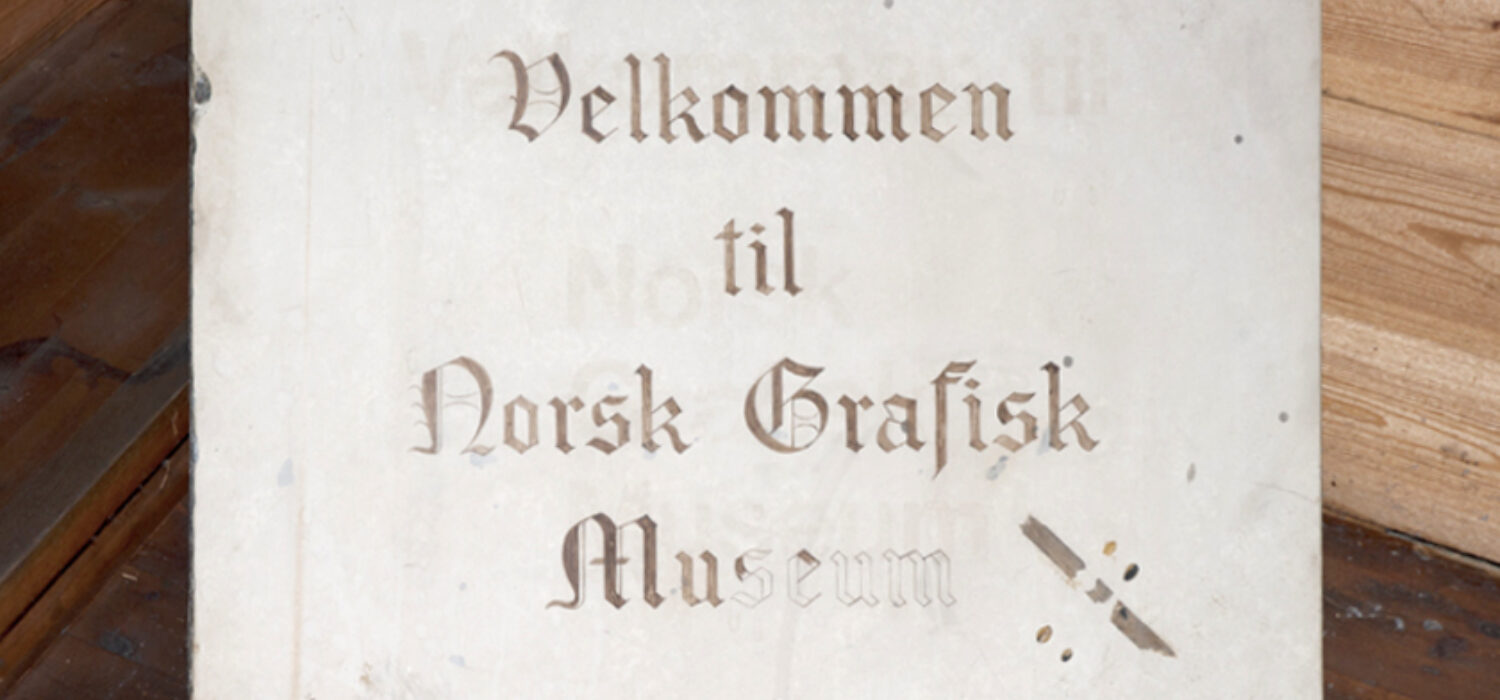 Velkommen
til
Norsk Grafisk
Museum